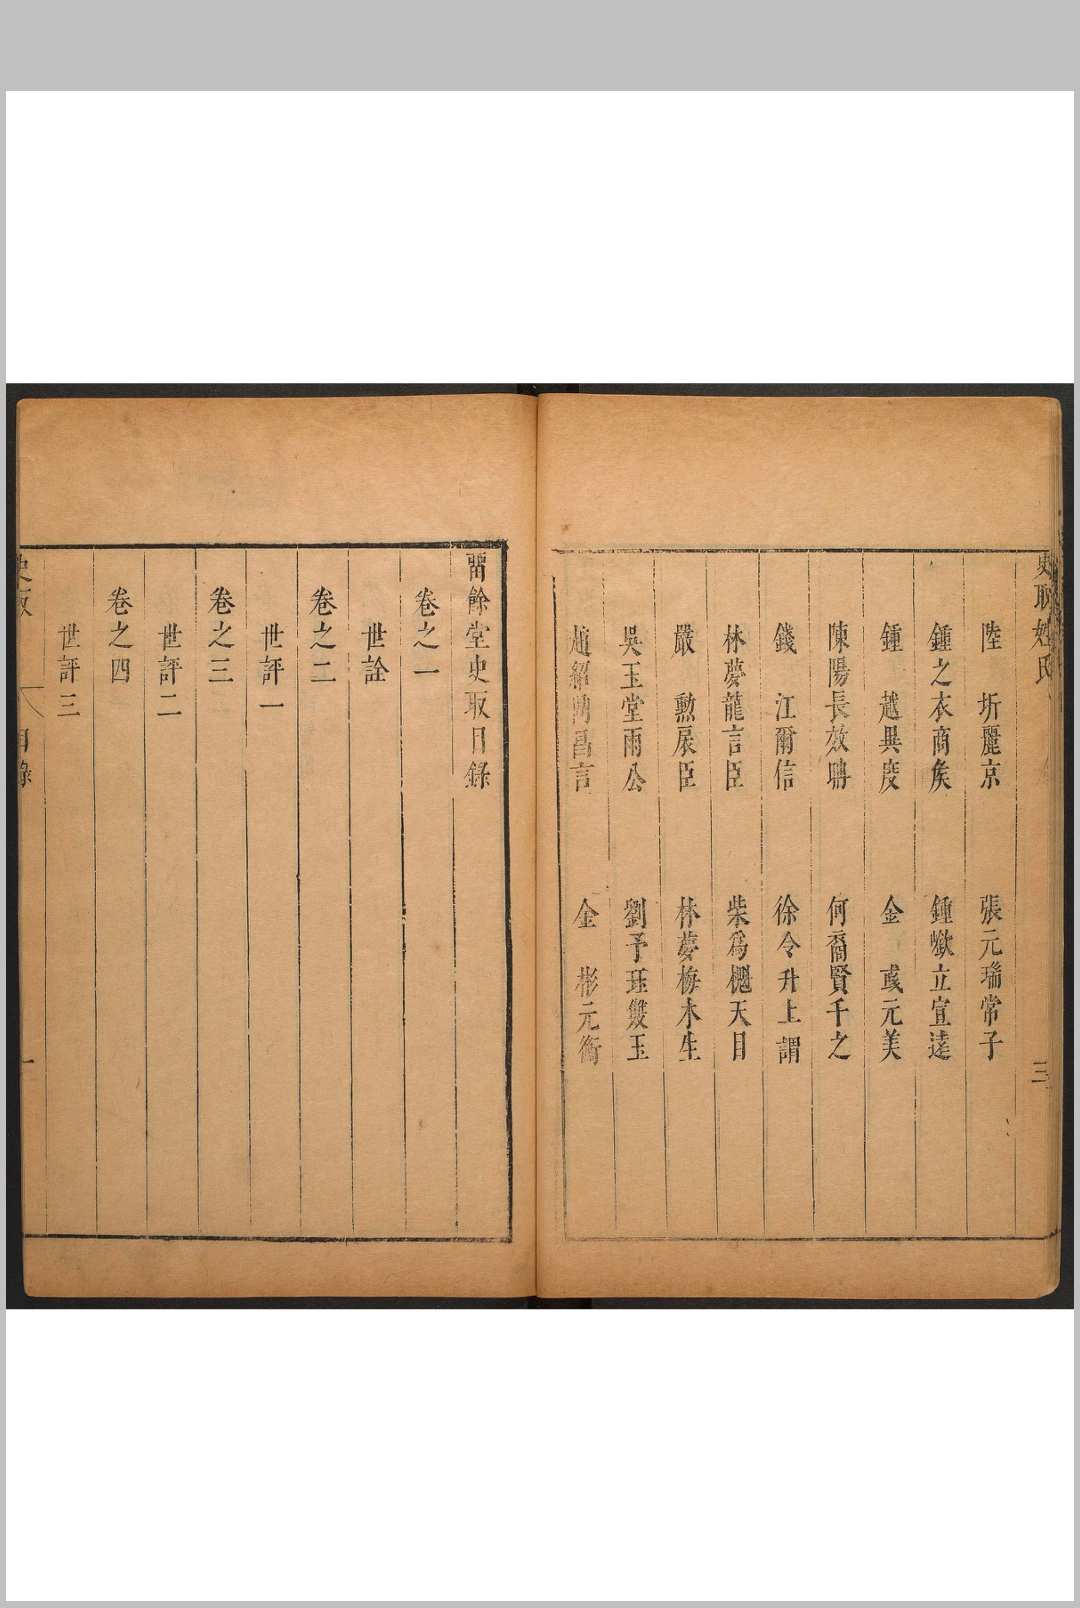 史取姓氏
三
陸 圻麗京
張元瑞常子
鍾之衣商矦
鍾嶔立宣遠
鍾 越異度
金 彧元美
陳陽長效聃
何裔賢千之
錢 江爾信
徐令升上謂
林夢龍言臣
柴爲楒天目
嚴 勲扆臣
林夢梅木生
吳玉堂雨公
劉予珏雙玉
趙紹 昌言
金 彬元衡
畱餘堂史取目錄
卷之一
世詮
卷之二
世評一
卷之三
世評二
卷之四
世評三
史取
目錄
一